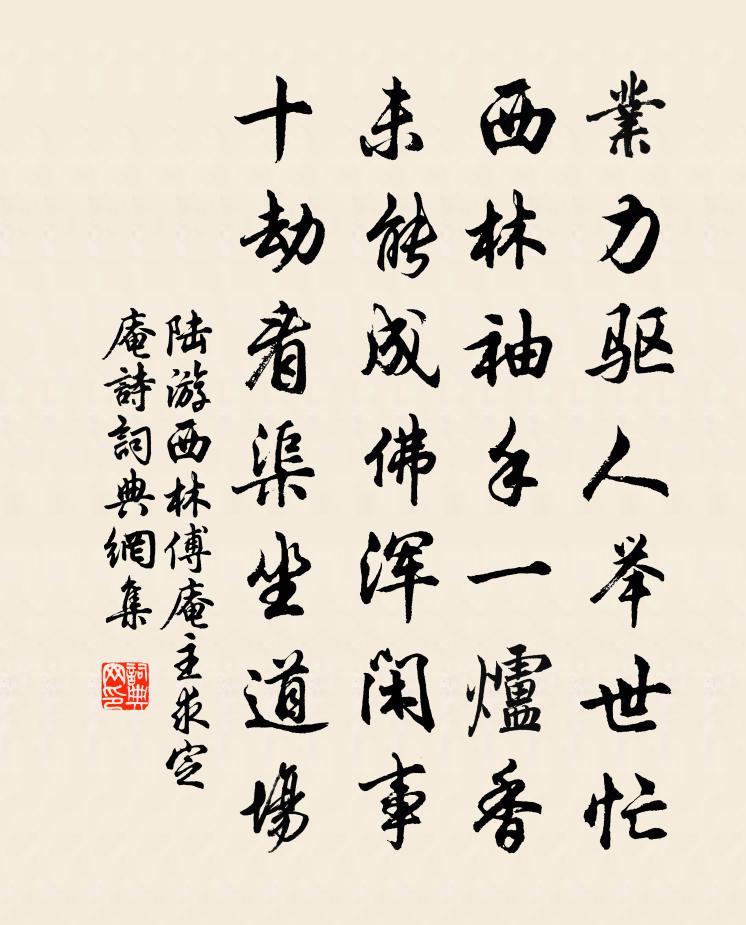 業力驱人举世忙
西林袖手一爐香
未能成佛浑闲事
十劫看渠坐道場
陆游西林傅庵主求定
庵詩詞典網集
詞典
网印